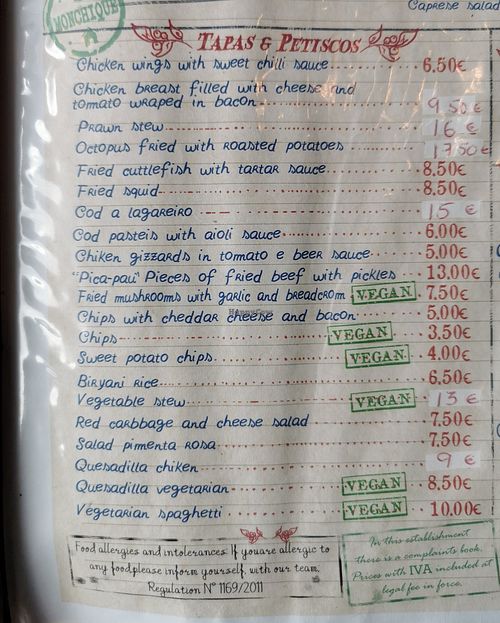 MONCHIQUE
Caprese salad
TAPAS & PETISCOS
Chicken wings with sweet chilli sauce 6.50€
Chicken breast filled with cheese and
tomato wraped in bacon 9.50€
Prawn stew 16 €
Octopus fried with roasted potatoes 17.50€
Fried cuttlefish with tartar sauce 8.50€
Fried squid 8.50€
Cod a lagareiro 15 €
Cod pasteis with aioli sauce 6.00€
Chiken gizzards in tomato e beer sauce 5.00€
"Pica-pau" Pieces of fried beef with pickles 13.00€
Fried mushrooms with garlic and breadcrom VEGAN 7.50€
Chips with cheddar cheese and bacon 5.00€
Chips VEGAN 3.50€
Sweet potato chips VEGAN 4.00€
Biryani rice 6.50€
Vegetable stew VEGAN 13 €
Red carbbage and cheese salad 7.50€
Salad pimenta rosa 7.50€
Quesadilla chiken 9 €
Quesadilla vegetarian VEGAN 8.50€
Vegetarian spaghetti VEGAN 10.00€
Food allergies and intolerances. If youare allergic to
any food,please inform yourself, with our team.
Regulation Nº 1169/2011
In this establishment
there is a complaints book.
Prices with IVA included at
legal fee in force.